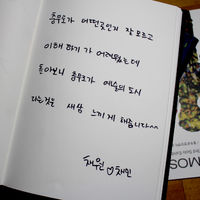 충무로가 어떤곳인지 잘 모르고
이해 하기 가 어려웠는데
돌아보니 충무로가 예술의 도시
라는것을 새삼 느끼게 해줍니다^^
채원♡채민
MOS